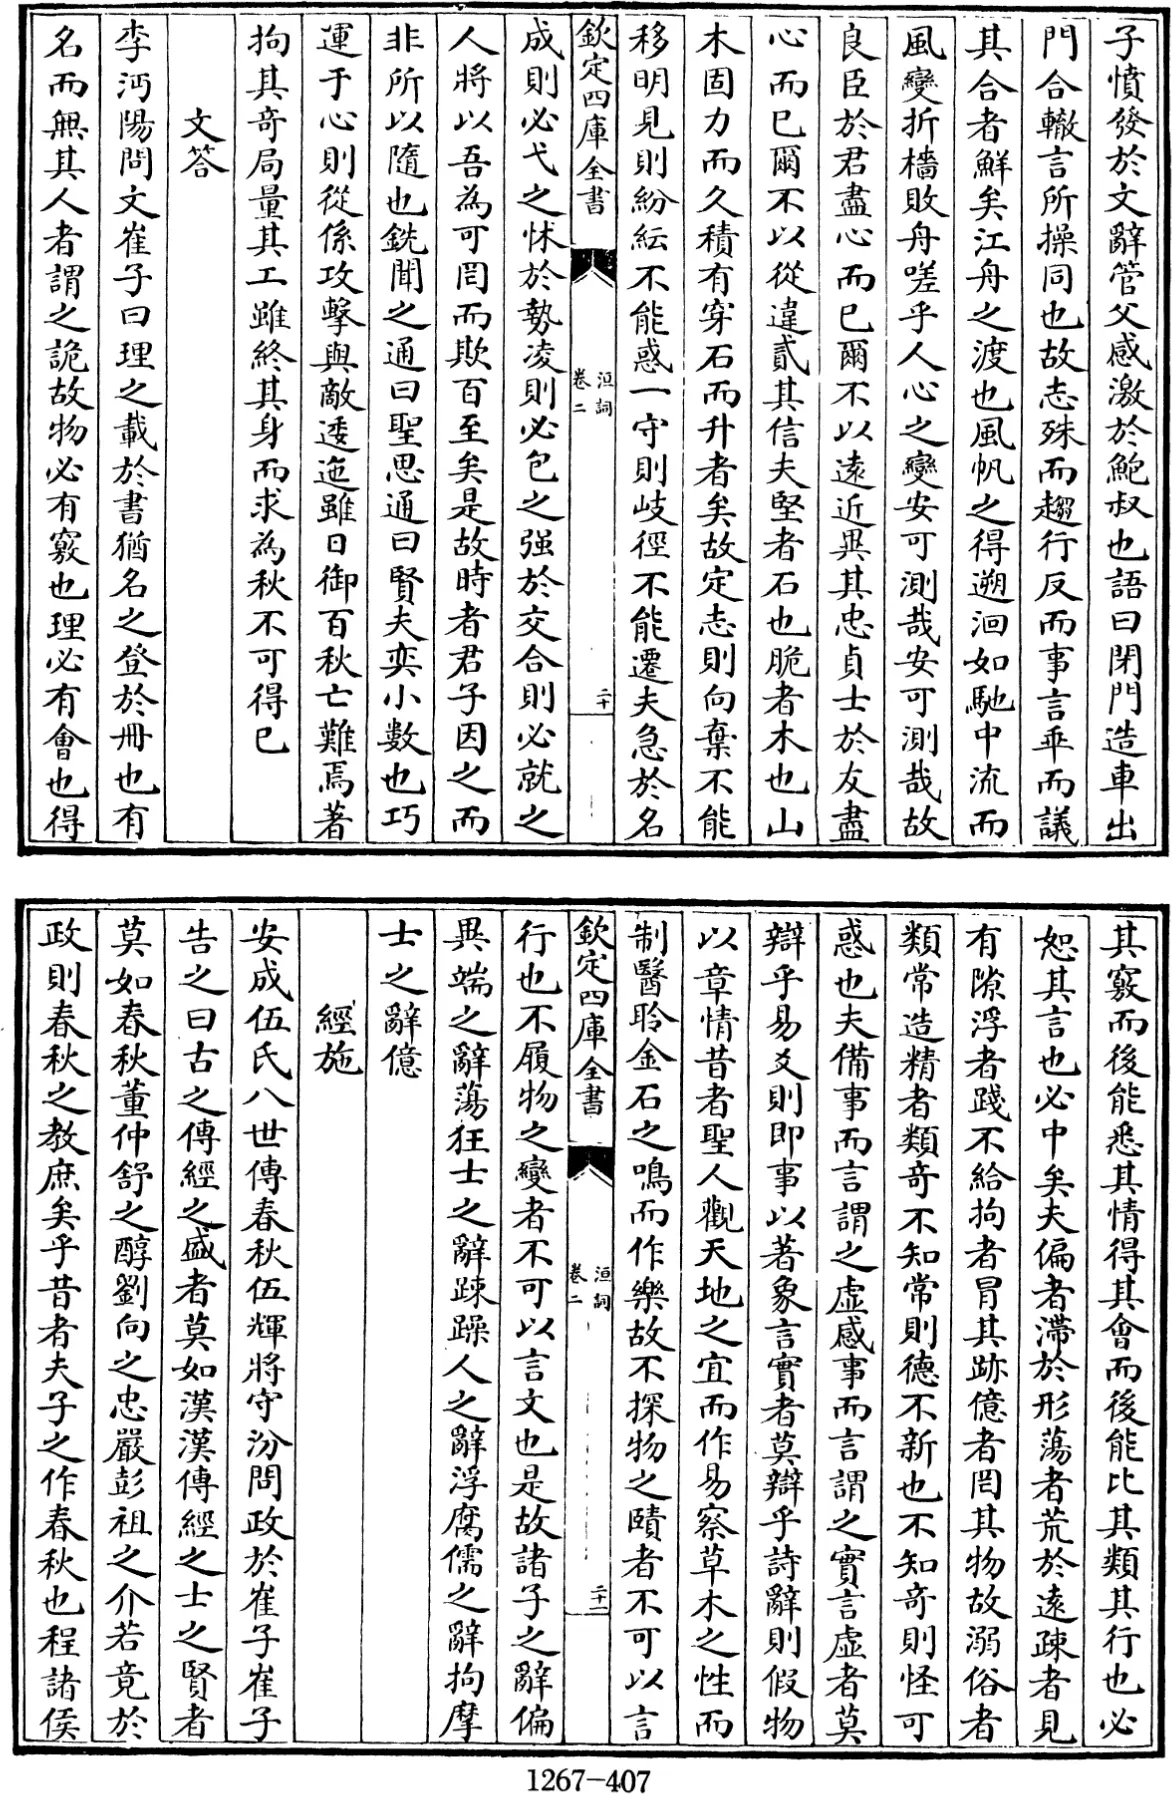 子憤發於文辭管父感激於鮑叔也語曰閉門造車出
門合轍言所操同也故志殊而趨行反而事言乖而議
其合者鮮矣江舟之渡也風帆之得遡洄如馳中流而
風變折檣敗舟嗟乎人心之變安可測哉安可測哉故
良臣於君盡心而已爾不以遠近異其忠貞士於友盡
心而已爾不以從違貳其信夫堅者石也脆者木也山
木固力而久積有穿石而升者矣故定志則向棄不能
移明見則紛紜不能惑一守則岐徑不能遷夫急於名
欽定四庫全書
洹詞
卷二
二十
成則必弋之怵於勢凌則必包之强於交合則必就之
人將以吾為可罔而欺百至矣是故時者君子因之而
非所以隨也銑聞之通曰聖思通曰賢夫奕小數也巧
運于心則從係攻擊與敵逶迤雖日御百秋亡難焉著
拘其奇局量其工雖終其身而求為秋不可得已
文答
李沔陽問文崔子曰理之載於書猶名之登於冊也有
名而無其人者謂之詭故物必有竅也理必有會也得
其竅而後能悉其情得其會而後能比其類其行也必
恕其言也必中矣夫偏者滯於形蕩者荒於遠疎者見
有隙浮者踐不給拘者冒其跡億者罔其物故溺俗者
類常造精者類奇不知常則德不新也不知奇則怪可
惑也夫備事而言謂之虛感事而言謂之實言虛者莫
辯乎易爻則即事以著象言實者莫辯乎詩辭則假物
以章情昔者聖人觀天地之宜而作易察草木之性而
制醫聆金石之鳴而作樂故不探物之賾者不可以言
欽定四庫全書
洹詞
卷二
二十一
行也不履物之變者不可以言文也是故諸子之辭偏
異端之辭蕩狂士之辭踈躁人之辭浮腐儒之辭拘摩
士之辭億
經施
安成伍氏八世傳春秋伍輝將守汾問政於崔子崔子
告之曰古之傳經之盛者莫如漢漢傳經之士之賢者
莫如春秋董仲舒之醇劉向之忠嚴彭祖之介若竟於
政則春秋之教庶矣乎昔者夫子之作春秋也程諸侯
1267-407